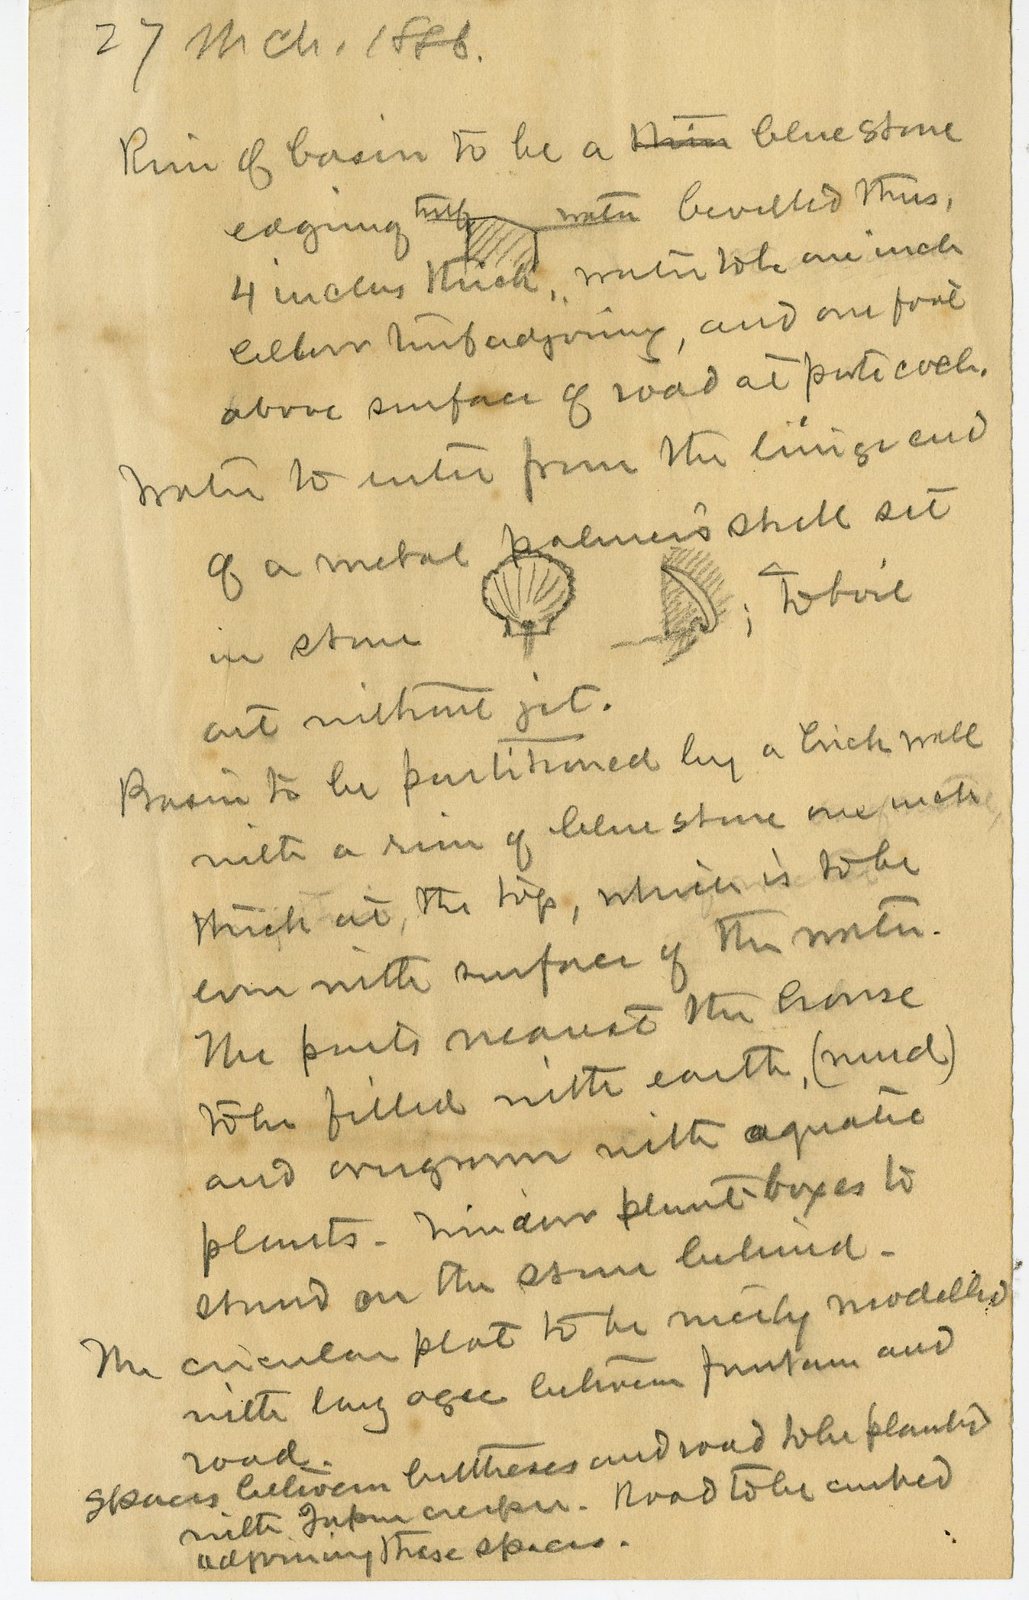 27 Mch. 1886.
Rim of basin to be a thin blue stone
edging turf water bevelled thus,
4 inches thick, water to be one inch
below turf adjoining, and one foot
above surface of road at porte coch.
Water to enter from the hinge end
of a metal palmer's shell set
in stone ; to boil
out without jet.
Basin to be partitioned by a brick wall
with a rim of blue stone one inch
thick at the top, which is to be
even with surface of the water.
The parts nearest the house
to be filled with earth, (mud)
and overgrown with aquatic
plants - Window plant boxes to
stand on the stone behind -
The circular plat to be nicely modelled
with long ogee between fountain and
road.
Spaces between buttresses and road to be planted
with Japan creeper. Road to be curbed
adjoining these spaces.